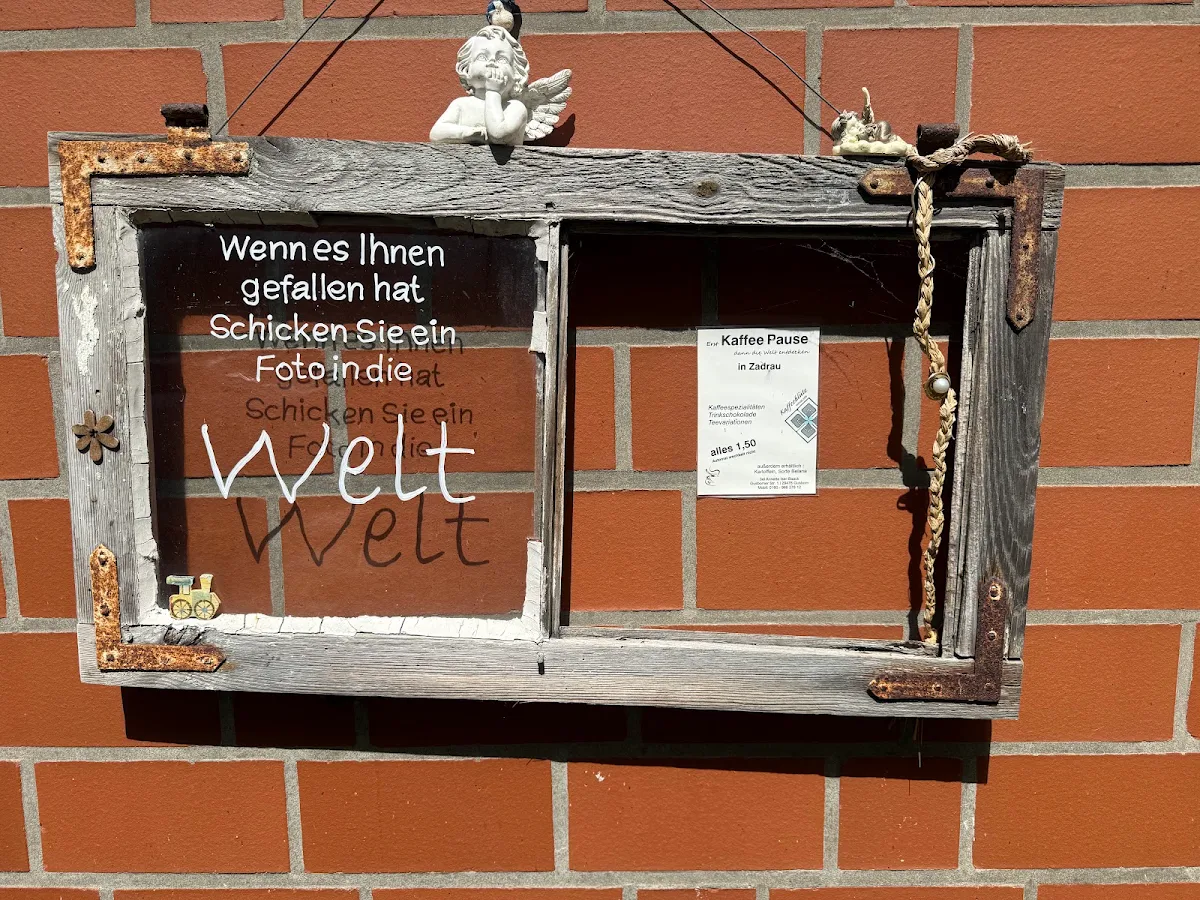 Wenn es Ihnen
gefallen hat
Schicken Sie ein
Foto in die
Welt
Erst Kaffee Pause
dann die Welt entdecken
in Zadrau
Kaffeespezialitäten
Trinkschokolade
Teevariationen
Kaffeeblüte
alles 1,50
außerdem erhältlich :
Kartoffeln, Sorte Belana